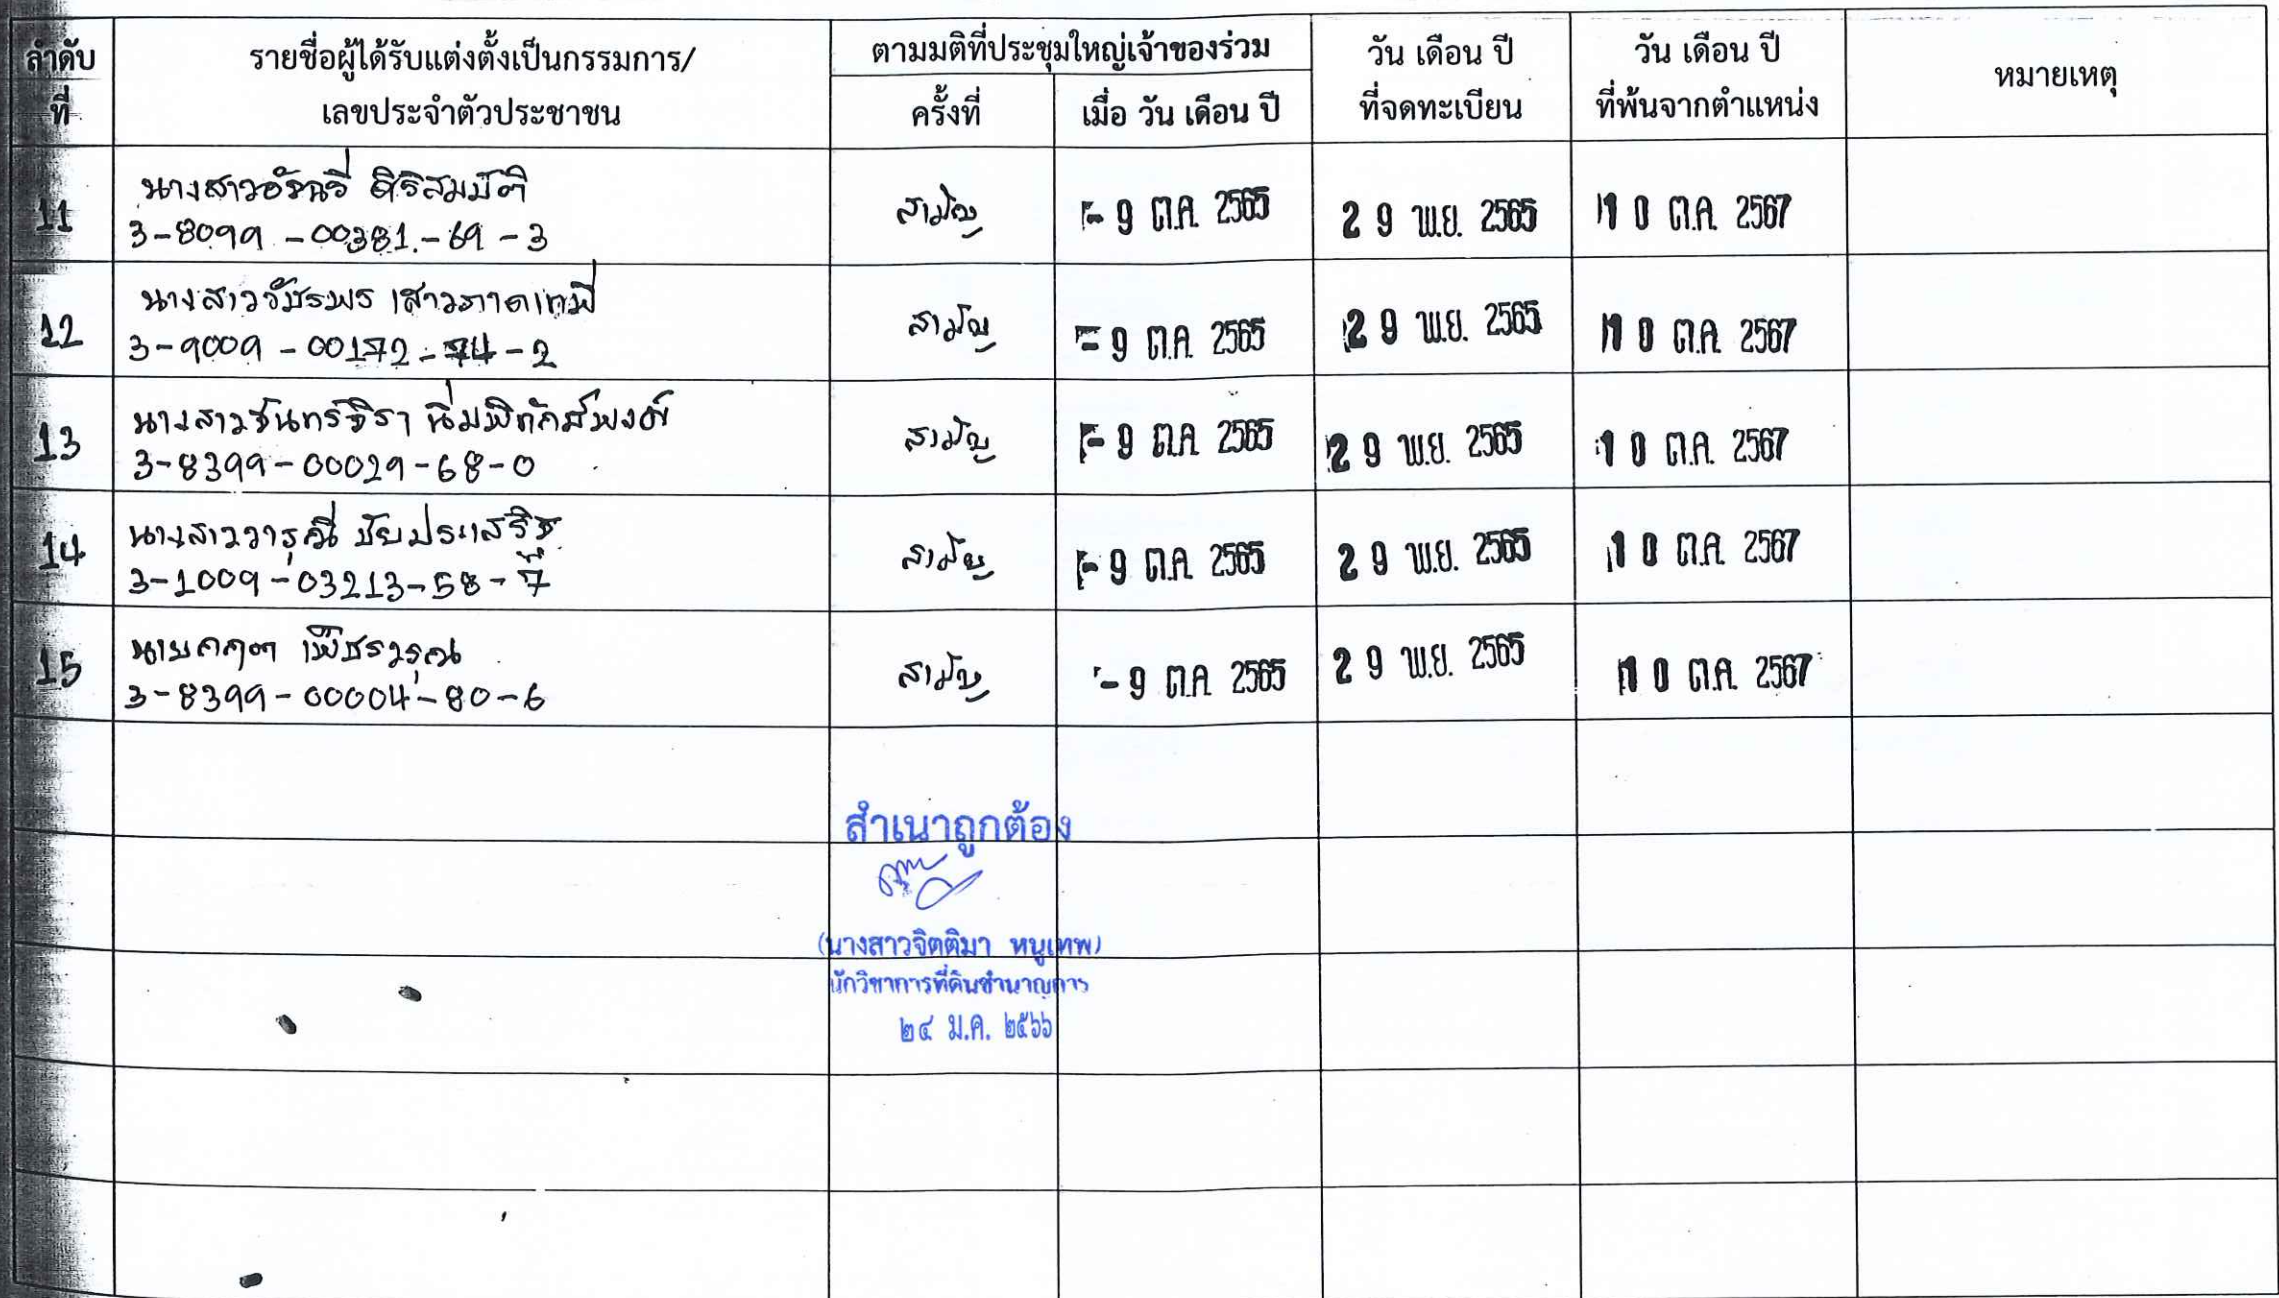 ลำดับ
ที่
รายชื่อผู้ได้รับแต่งตั้งเป็นกรรมการ/
เลขประจำตัวประชาชน
ตามมติที่ประชุมใหญ่เจ้าของร่วม
ครั้งที่
เมื่อ วัน เดือน ปี
วัน เดือน ปี
ที่จดทะเบียน
วัน เดือน ปี
ที่พ้นจากตำแหน่ง
หมายเหตุ
11
นางสาวอัญชรี ศิริสมบัติ
3-8099-00381-69-3
สามัญ
- 9 ต.ค. 2565
2 9 พ.ย. 2565
1 0 ต.ค. 2567
12
นางสาววัชรพร เสาวภาคเทพี
3-9009-00172-74-2
สามัญ
- 9 ต.ค. 2565
2 9 พ.ย. 2565
1 0 ต.ค. 2567
13
นางสาวจันทร์จิรา นิ่มพิทักษ์พงศ์
3-8399-00029-68-0
สามัญ
- 9 ต.ค. 2565
2 9 พ.ย. 2565
1 0 ต.ค. 2567
14
นางสาววารุณี ชัยประเสริฐ
3-1009-03213-58-7
สามัญ
- 9 ต.ค. 2565
2 9 พ.ย. 2565
1 0 ต.ค. 2567
15
นาย เพ็ชรวรุณ
3-8399-00004-80-6
สามัญ
- 9 ต.ค. 2565
2 9 พ.ย. 2565
1 0 ต.ค. 2567
สำเนาถูกต้อง
(นางสาวจิตติมา หนูเทพ)
นักวิชาการที่ดินชำนาญการ
๒๔ ม.ค. ๒๕๖๖